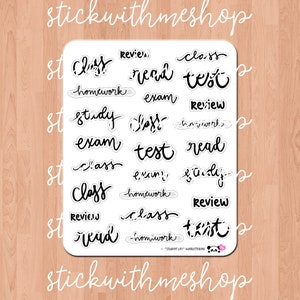 stickwithmeshop
class review class
read test
homework exam
study review
exam homework
class test read
exam study
class homework
review class review
read homework test
stickwithmeshop